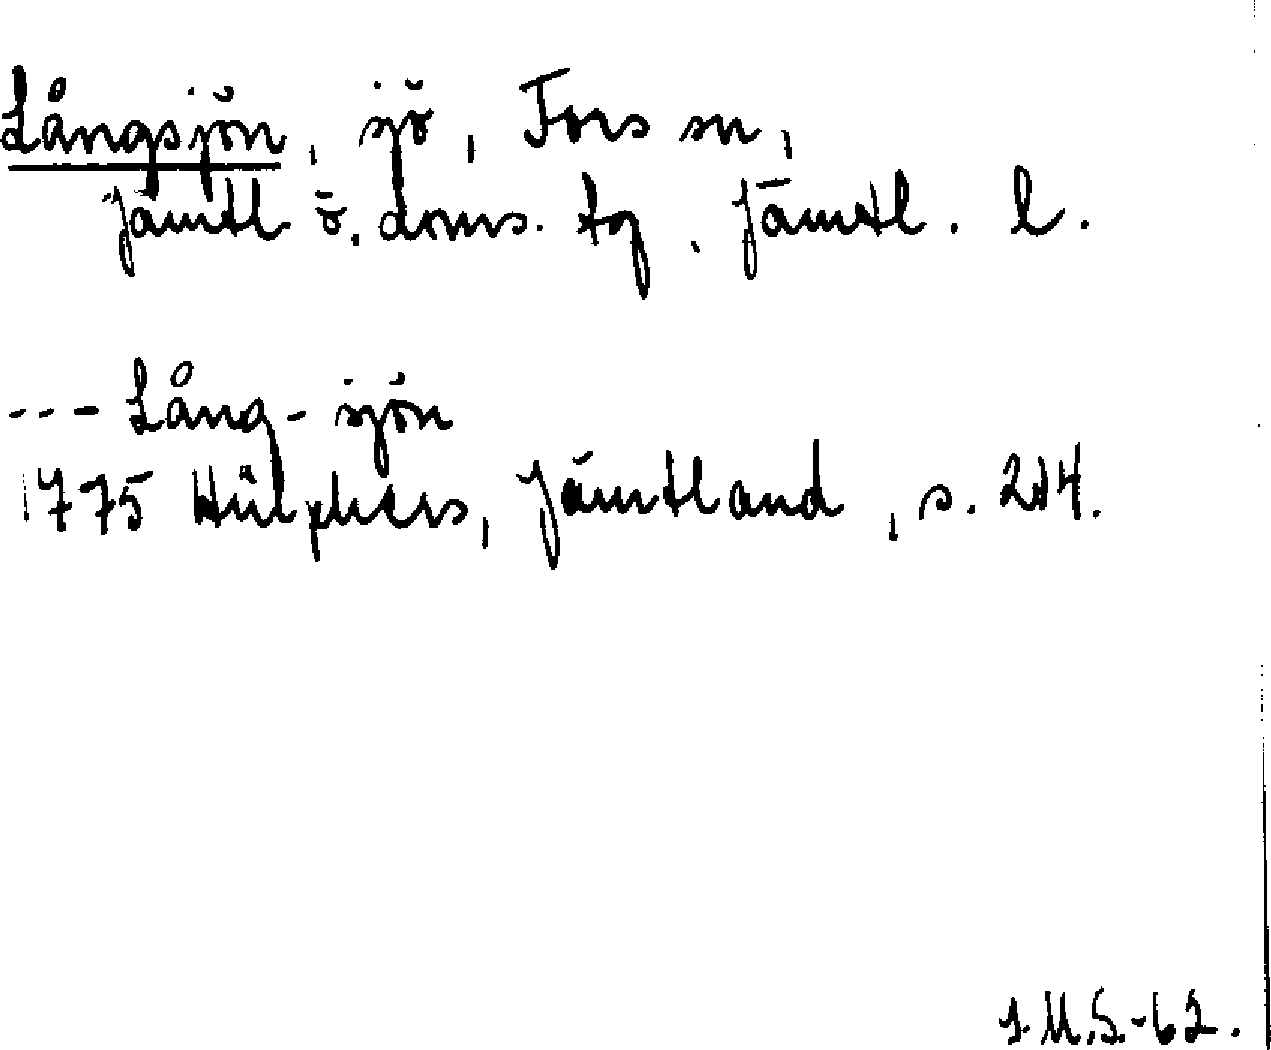 Långsjön, sjö, Fors sn,
Jämtl ö. doms. tg, Jämtl. l.
--- Lång-sjön
1775 Hülphers, Jämtland, s. 214.
I.M.S.-62.